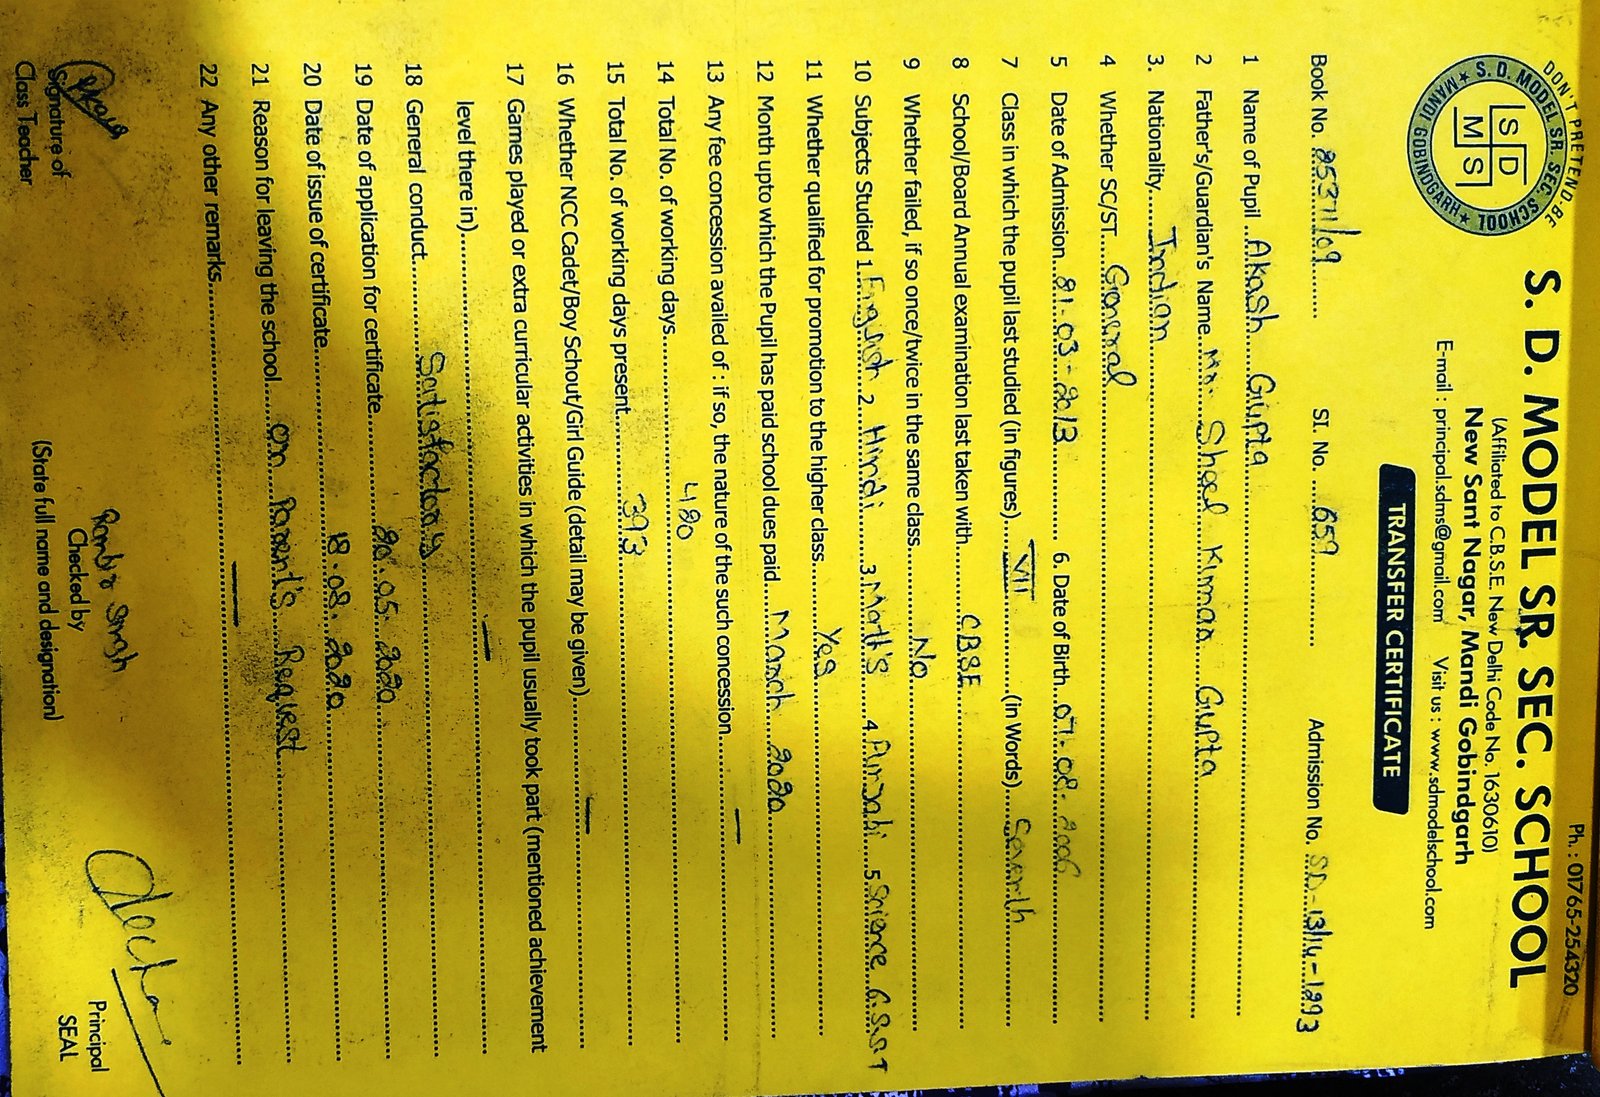 Ph. : 01765-254320
DON'T PRETEND-BE
S. D. MODEL SR. SEC. SCHOOL
MANDI GOBINDGARH
SD
MS
S. D. MODEL SR. SEC. SCHOOL
(Affiliated to C.B.S.E. New Delhi Code No. 1630610)
New Sant Nagar, Mandi Gobindgarh
E-mail : principal.sdms@gmail.com Visit us : www.sdmodelschool.com
TRANSFER CERTIFICATE
Book No. 8537/109 SI. No. 659 Admission No. SD-13/14-1993
1 Name of Pupil Akash Gupta
2 Father's/Guardian's Name Mr. Sheel Kumar Gupta
3. Nationality Indian
4 Whether SC/ST General
5 Date of Admission 21.03-2013 6. Date of Birth 07.08.2006
7 Class in which the pupil last studied (in figures) VII (in Words) Seventh
8 School/Board Annual examination last taken with CBSE
9 Whether failed, if so once/twice in the same class No
10 Subjects Studied 1. English 2 Hindi 3 Math's 4 Punjabi 5 Science 6. S.ST
11 Whether qualified for promotion to the higher class Yes
12 Month upto which the Pupil has paid school dues paid March 2020
13 Any fee concession availed of : if so, the nature of the such concession —
14 Total No. of working days 420
15 Total No. of working days present 393
16 Whether NCC Cadet/Boy Schout/Girl Guide (detail may be given) —
17 Games played or extra curricular activities in which the pupil usually took part (mentioned achievement
level there in) —
18 General conduct Satisfactory
19 Date of application for certificate 20.05.2020
20 Date of issue of certificate 18.08.2020
21 Reason for leaving the school On Parent's Request
22 Any other remarks —
Signature of
Class Teacher
Singh
Checked by
(State full name and designation)
Principal
SEAL